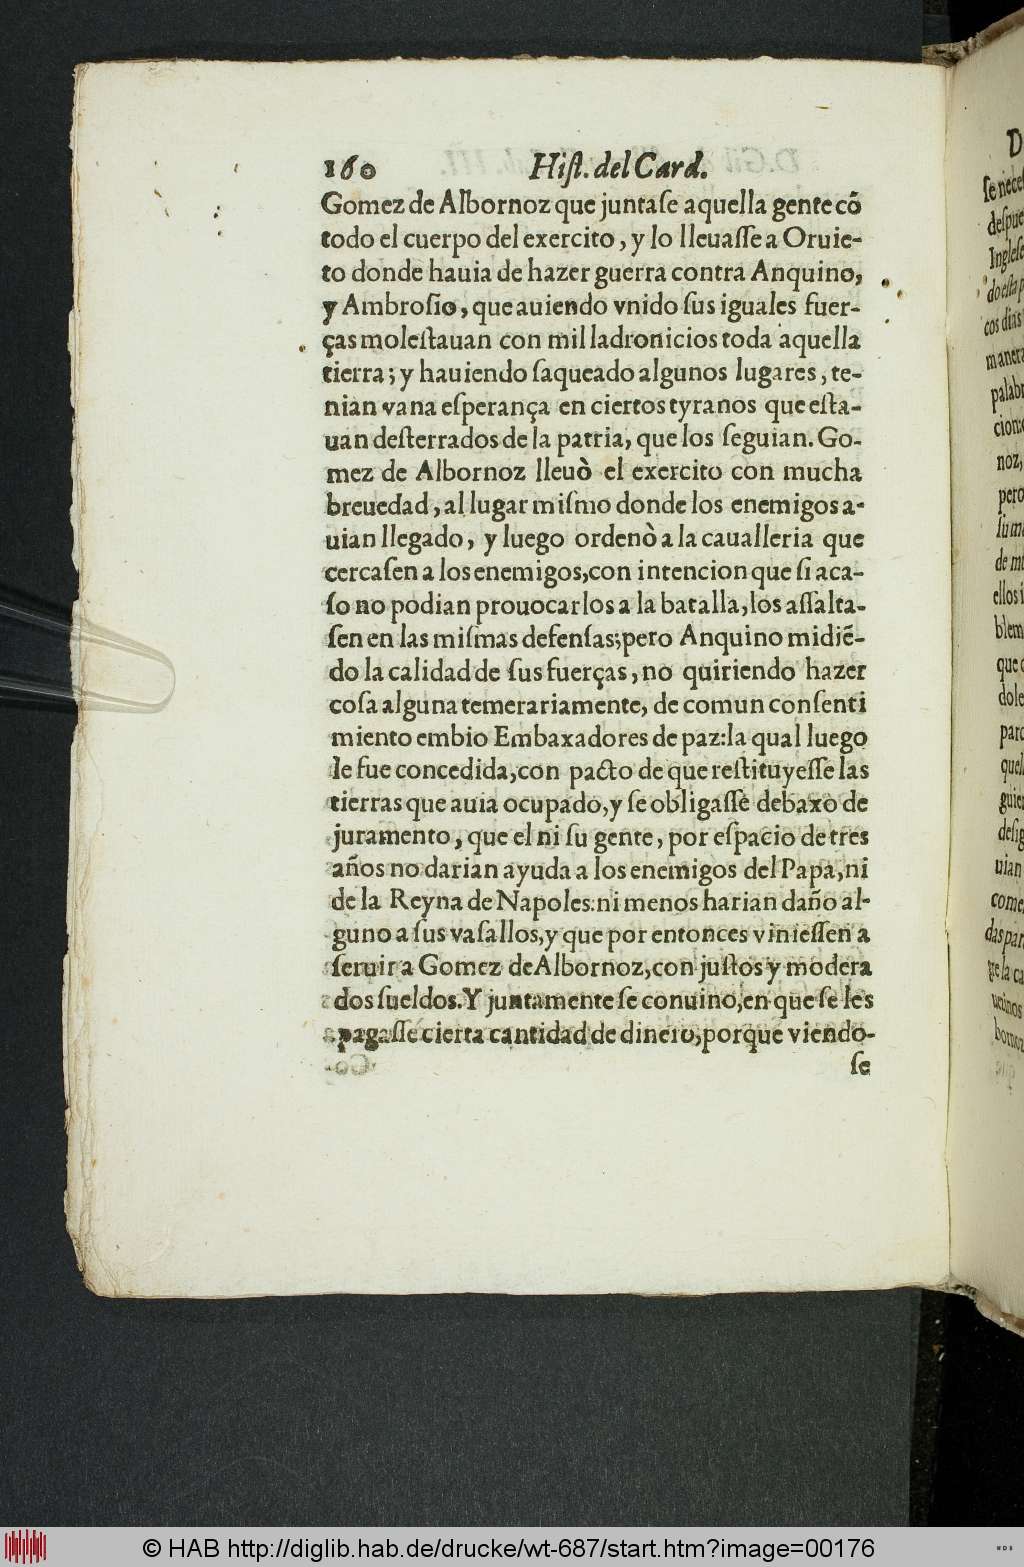 160 Hiſt. del Card.
Gomez de Albornoz que juntaſe aquella gente cõ
todo el cuerpo del exercito, y lo lleuaſſe a Oruie-
to donde hauia de hazer guerra contra Anquino,
y Ambroſio, que auiendo vnido ſus iguales fuer-
ças moleſtauan con mil ladronicios toda aquella
tierra; y hauiendo ſaqueado algunos lugares, te-
nian vana eſperança en ciertos tyranos que eſta-
uan deſterrados de la patria, que los ſeguian. Go-
mez de Albornoz lleuò el exercito con mucha
breuedad, al lugar miſmo donde los enemigos a-
uian llegado, y luego ordenò a la caualleria que
cercaſen a los enemigos, con intencion que ſi aca-
ſo no podian prouocarlos a la batalla, los aſſalta-
ſen en las miſmas defenſas; pero Anquino midiẽ-
do la calidad de ſus fuerças, no quiriendo hazer
coſa alguna temerariamente, de comun conſenti
miento embio Embaxadores de paz: la qual luego
le fue concedida, con pacto de que reſtituyeſſe las
tierras que auia ocupado, y ſe obligaſſe debaxo de
juramento, que el ni ſu gente, por eſpacio de tres
años no darian ayuda a los enemigos del Papa, ni
de la Reyna de Napoles: ni menos harian daño al-
guno a ſus vaſallos, y que por entonces vinieſſen a
ſeruir a Gomez de Albornoz, con juſtos y modera
dos ſueldos. Y juntamente ſe conuino, en que ſe les
pagaſſe cierta cantidad de dinero, porque viendo-
ſe
D
ſe neceſ
deſpue
Ingleſe
do eſta p
cos dias
manera
palabr
cion
noz,
pero
ſu ma
de m
ellos i
blem
que
dole
parc
quel
guie
deſig
uian
come
das par
gre la ca
uecinos
borno
© HAB http://diglib.hab.de/drucke/wt-687/start.htm?image=00176